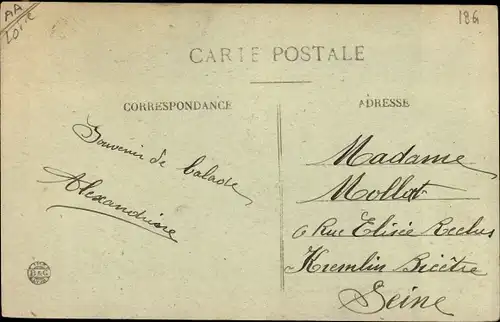 AA
Loire
186
CARTE POSTALE
CORRESPONDANCE
ADRESSE
Souvenir de balade
Alexandrine
Madame
Mollat
6 Rue Elisée Reclus
Kremlin Bicêtre
Seine